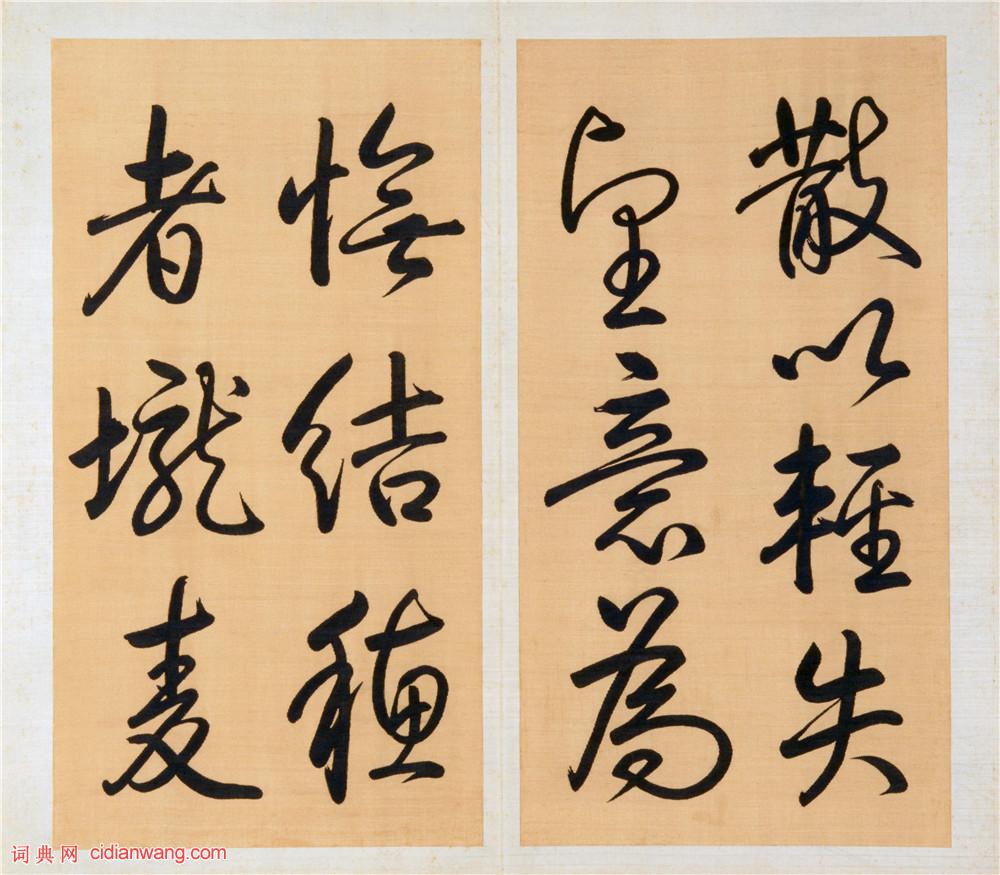 散以輕失
望意為
憮結穂
者壠麦
词典网 cidianwang.com